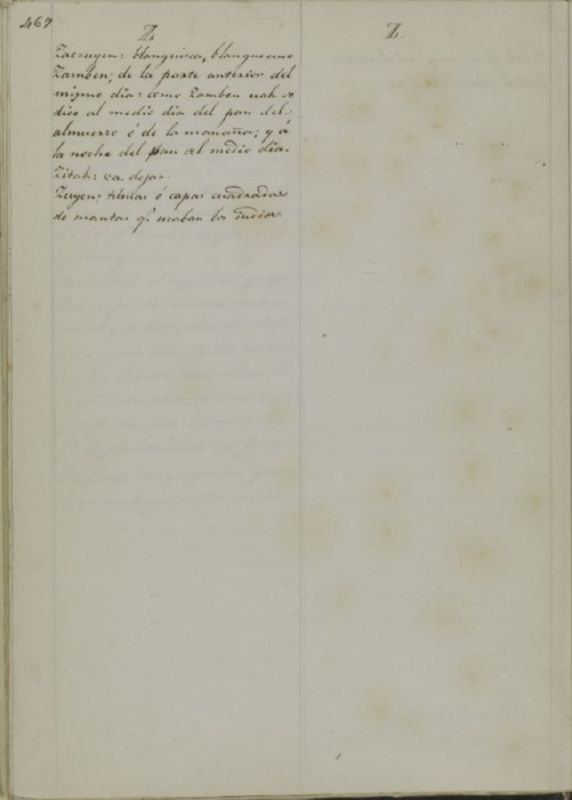 467
Z
Z.
Zacuyen: blanquisca, blanquecino
Zamben; de la parte anterior del
mismo dia: como Zamben uah se
dice al medio dia del pan del
almuerzo ó de la manaña; y á
la noche del pan del medio dia.
Zitah: ca. dejar.
Zuyen; tilmas ó capas cuadradas
de mantas q.e usaban los indios.